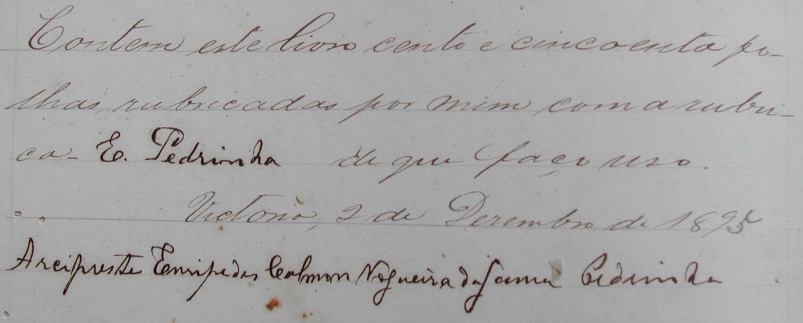 Contem este livro cento e cincoenta fo-
lhas, rubricadas por mim com a rubri-
ca- E. Pedrinha de que faço uso.
Victoria, 2 de Dezembro de 1895
Arcipreste Euripedes Calmon Nogueira da Gama Pedrinha